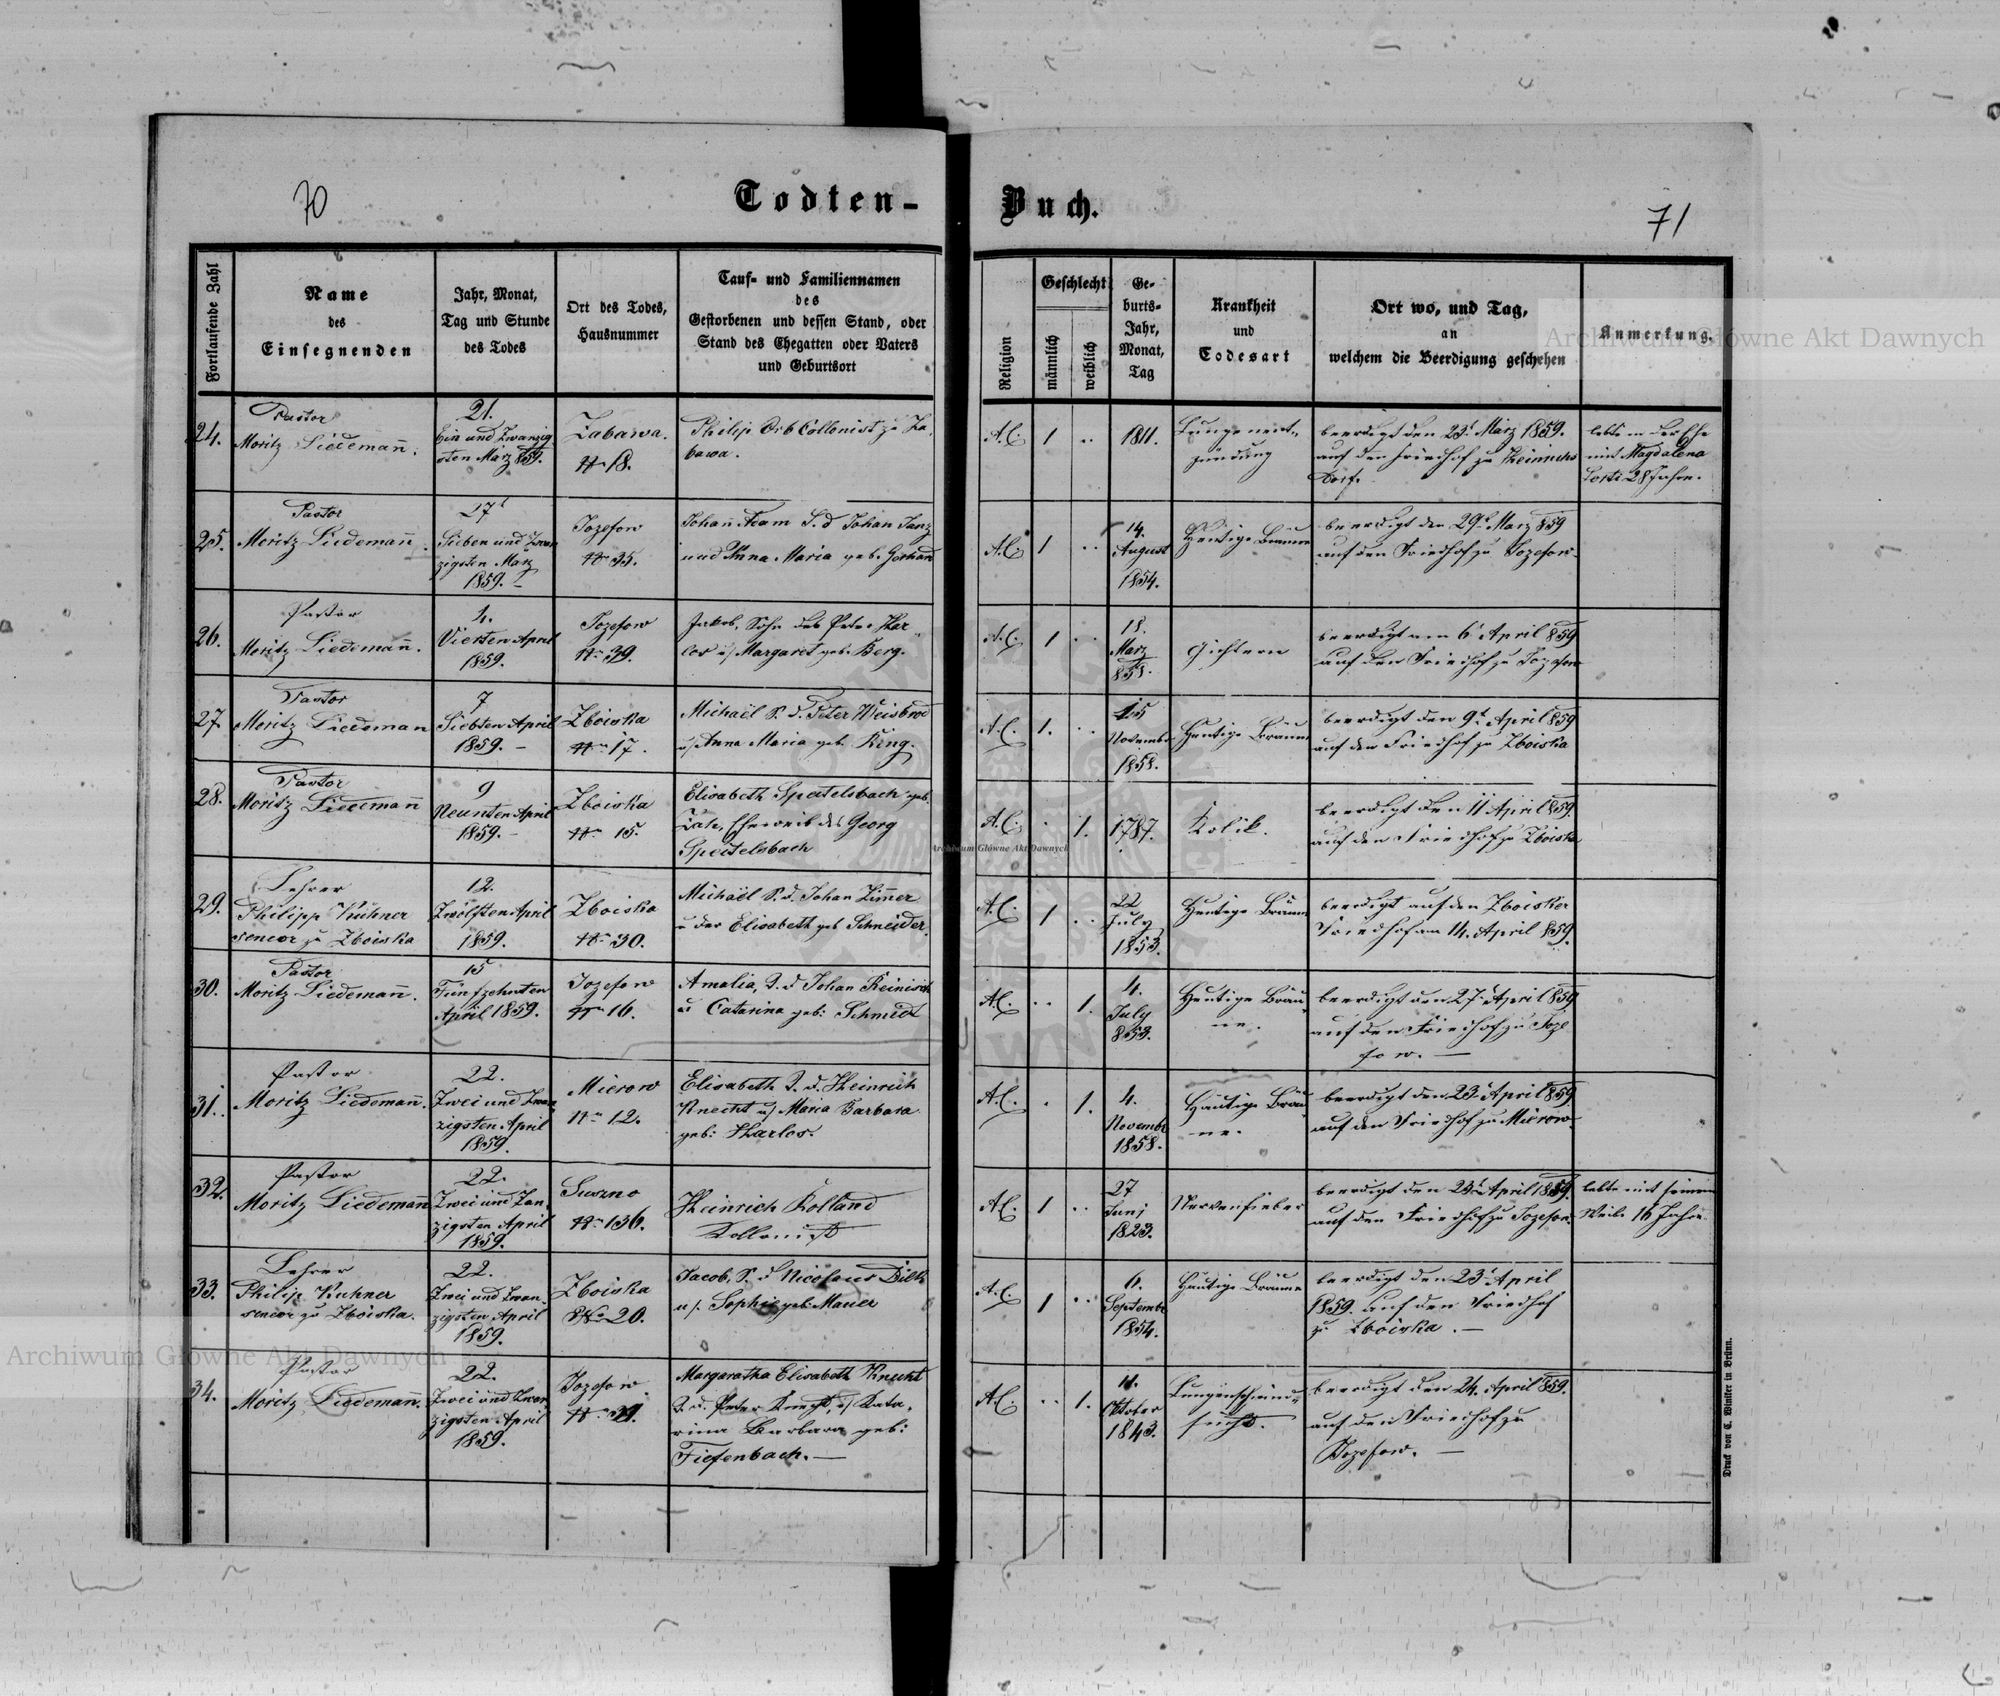 70
Todten-
Buch.
71
Fortlaufende Zahl
Name
des
Einsegnenden
Jahr, Monat,
Tag und Stunde
des Todes
Ort des Todes,
Hausnummer
Tauf- und Familiennamen
des
Gestorbenen und dessen Stand, oder
Stand des Ehegatten oder Vaters
und Geburtsort
Religion
Geschlecht
männlich
weiblich
Ge-
burts-
Jahr,
Monat,
Tag
Krankheit
und
Todesart
Ort wo, und Tag,
an
welchem die Beerdigung geschehen
Anmerkung.
24.
Pastor
Moritz Liedemañ.
21.
Ein und Zwanzig
sten März 859.
Zabawa.
Nr 18.
Philip Orb Collonist zu Za,
bawa.
A.C.
1
1811.
Lungenent,,
zündung
beerdigt den 23t März 1859.
auf den Friedhof zu Heinrichs
dorf.
lebte in der Ehe
mit Magdalena
28 Jahre.
25.
Pastor
Moritz Liedemañ.
27t
Sieben und Zwan
zigsten März
1859. -
Jozefow
Nr 35.
Johañ Adam S. d Johan Janz
und Anna Maria geb.
A.C.
1
14.
August
1854.
Häutige Bräune
beerdigt den 29t März 859
auf den Friedhof zu Jozefow
26.
Pastor
Moritz Liedemañ.
4.
Vierten April
1859.
Jozefow
Nr 39.
Jakob, Sohn des Peter Har,,
los u/ Margaret geb. Berg.
A.C.
1
18.
März
858.
Gichtern
beerdigt am 6t April 859
auf den Friedhof zu Jozefow
27.
Pastor
Moritz Liedeman
7
Siebten April
1859. -
Zboiska
Nr 17.
Michaël S. d. Peter Weisbrod
u/ Anna Maria geb. Ring.
A.C.
1.
15
Novembr
1858.
Häutige Bräune
beerdigt den 9t April 859
auf den Friedhof zu Zboiska
28.
Pastor
Moritz Liedemañ
9
Neunten April
1859. -
Zboiska
Nr 15.
Elisabeth Speitelsbach geb.
Eheweib des Georg
Speitelsbach
A.C.
1.
1787.
Kolik.
beerdigt den 11 April 859.
auf den Friedhof zu Zboiska
29.
Lehrer
Philipp Kuhner
senior zu Zboiska
12.
Zwölften April
1859.
Zboiska
Nr 30.
Michaël S. d. Johan Zim̃er
u der Elisabeth geb Schneider.
A.C.
1
22
July
1853.
Häutige Bräune
beerdigt auf den Zboisker
Friedhof am 14. April 859.
30.
Pastor
Moritz Liedemañ.
15
Fünfzehnten
April 1859.
Jozefow
Nr 16.
Amalia, T. d Johan Reinisch
u Catarina geb: Schmidt
A.C.
1.
4.
July
853.
Häutige Bräu,,
ne.
beerdigt den 27t April 859
auf den Friedhof zu Joze
fow. —
31.
Pastor
Moritz Liedemañ.
22.
Zwei und Zwan,
zigsten April
1859.
Mierow
Nr 12.
Elisabeth T. d. Heinrich
Knecht u/ Maria Barbara
geb: Harlos.
A.C.
1.
4.
Novembr
1858.
Häutige Bräu
-ne.
beerdigt den 23t April 859
auf den Friedhof zu Mierow.
32.
Pastor
Moritz Liedemañ
22.
Zwei und Zan,
zigsten April
1859.
Suszno
Nr 136.
Heinrich Rolland
Kollonist
A.C.
1
27
Junj
1823.
Nervenfieber
beerdigt den 23t April 1859.
auf den Friedhof zu Jozefow.
lebte mit seinem
Weibe 16 Jahre
33.
Lehrer
Philip Kuhner
senior zu Zboiska.
22.
Zwei und Zwan,
zigsten April
1859.
Zboiska
Nro 20.
Jacob, S. d Nicolaus Dilk
u/. Sophie geb. Mauer
A.C.
1
6.
Septembr
1854.
Häutige Bräune
beerdigt den 23t April
1859. auf den Friedhof
zu Zboiska. —
34.
Pastor
Moritz Liedemañ.
22.
Zwei und Zwan
zigsten April
1859.
Jozefow.
Nr 39.
Margaratha Elisabeth Knecht
T. d. Peter Knecht, u/ Kata,
rina Barbara geb:
Tiefenbach. —
A.C.
1.
11.
Oktober
1843.
Lungenschwind,,
sucht.
beerdigt den 24. April 859.
auf den Friedhof zu
Jozefow. —
Druck von C. Winiker in Brünn.
Archiwum Główne Akt Dawnych
Archiwum Główne Akt Dawnych
Archiwum Główne Akt Dawnych